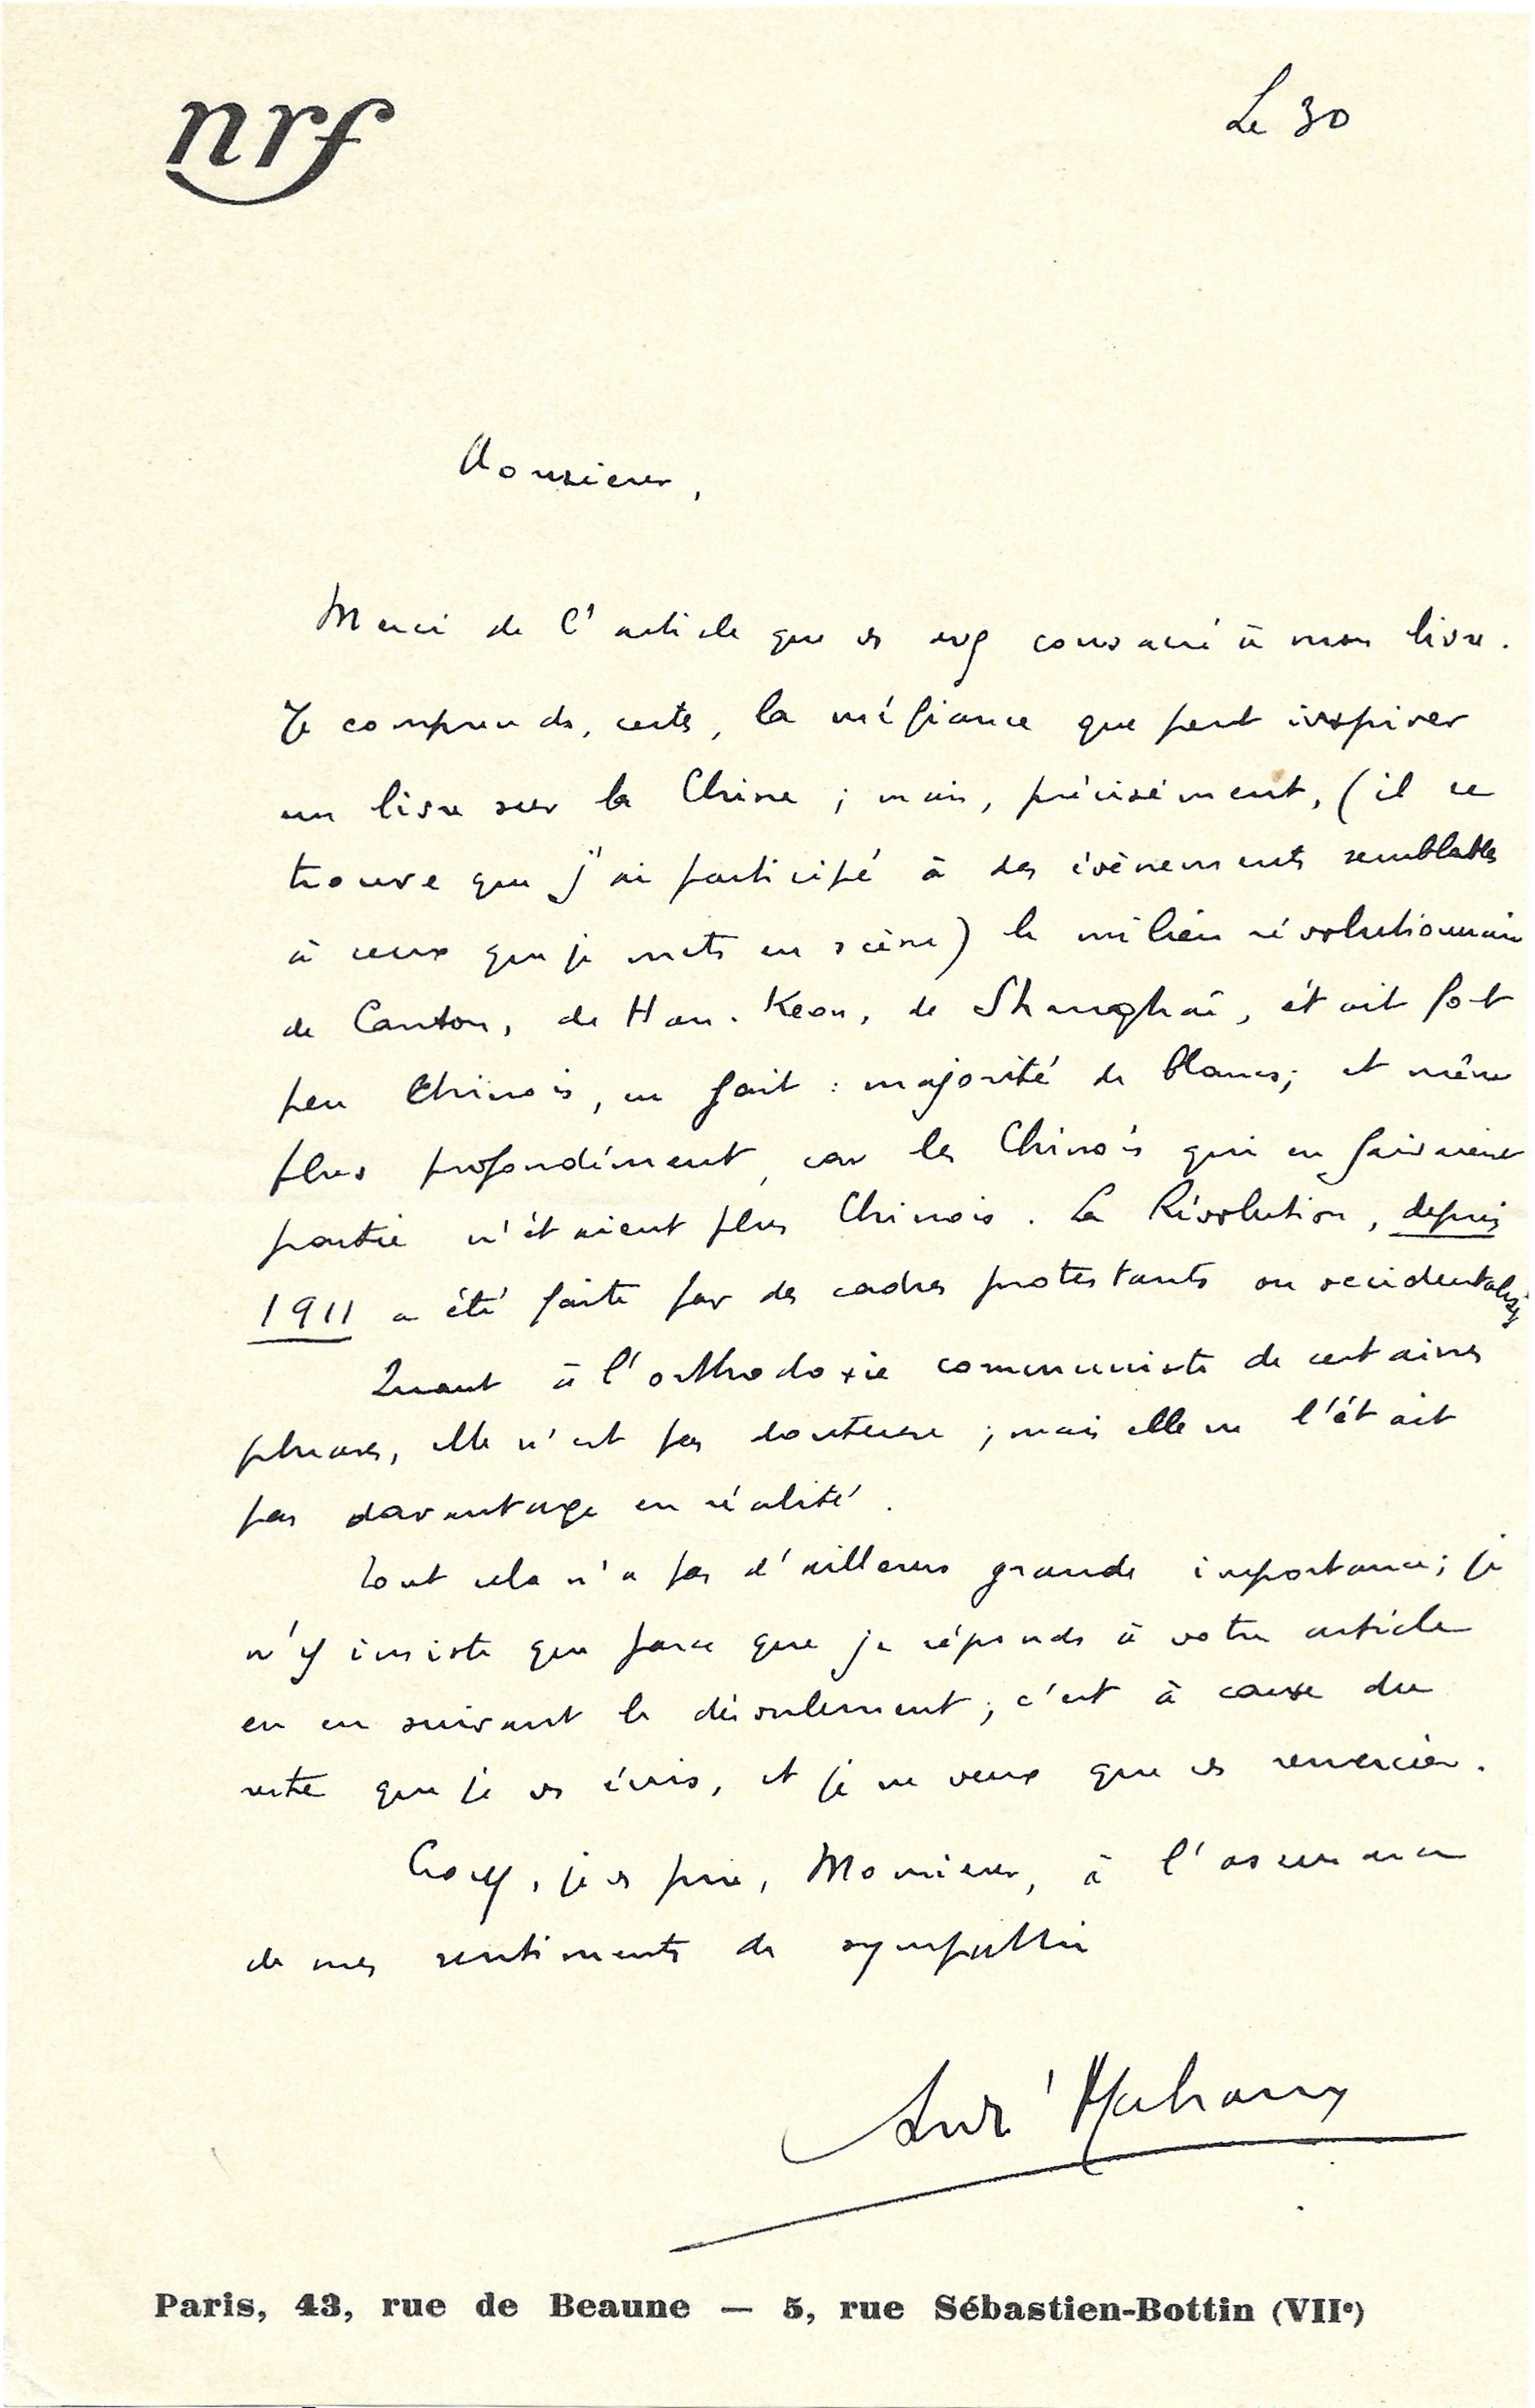 nrf
Le 30
Monsieur,
Merci de l'article que vs avez consacré à mon livre.
Je comprends, certes, la méfiance que peut inspirer
un livre sur la Chine ; mais, précisément, (il se
trouve que j'ai participé à des évènements semblables
à ceux que je mets en scène) le milieu révolutionnaire
de Canton, de Han-Keou, de Shanghaï, était fort
peu Chinois, en fait : majorité de blancs ; et même
plus profondément, car les Chinois qui en faisaient
partie n'étaient plus Chinois. La Révolution, depuis
1911 a été faite par des cadres protestants ou occidentalisés
Quant à l'orthodoxie communiste de certaines
phrases, elle n'est pas douteuse ; mais elle ne l'était
pas davantage en réalité.
Tout cela n'a pas d'ailleurs grande importance ; je
n'y insiste que parce que je réponds à votre article
en en suivant le déroulement ; c'est à cause du
reste que je vs écris, et je ne veux que vs remercier.
Croyez, je vs prie, Monsieur, à l'assurance
de mes sentiments de sympathie
André Malraux
Paris, 43, rue de Beaune — 5, rue Sébastien-Bottin (VIIe)